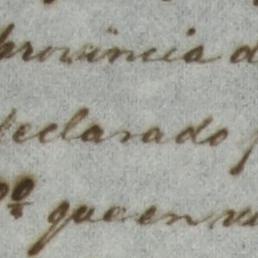 provincia d
declarado p
que en vi